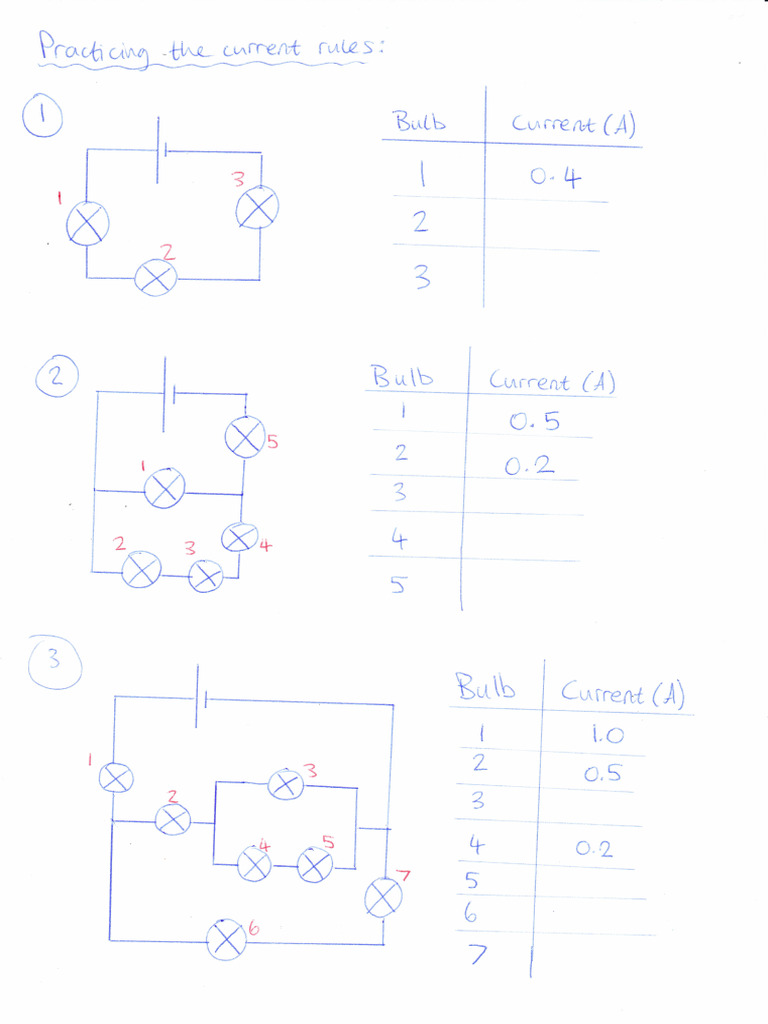 Practicing the current rules:
1
Bulb Current (A)
1 0.4
2
3
1
2
3
2
Bulb Current (A)
1 0.5
2 0.2
3
4
5
5
1
2
3
4
3
Bulb Current (A)
1 1.0
2 0.5
3
4 0.2
5
6
7
1
3
2
4
5
7
6